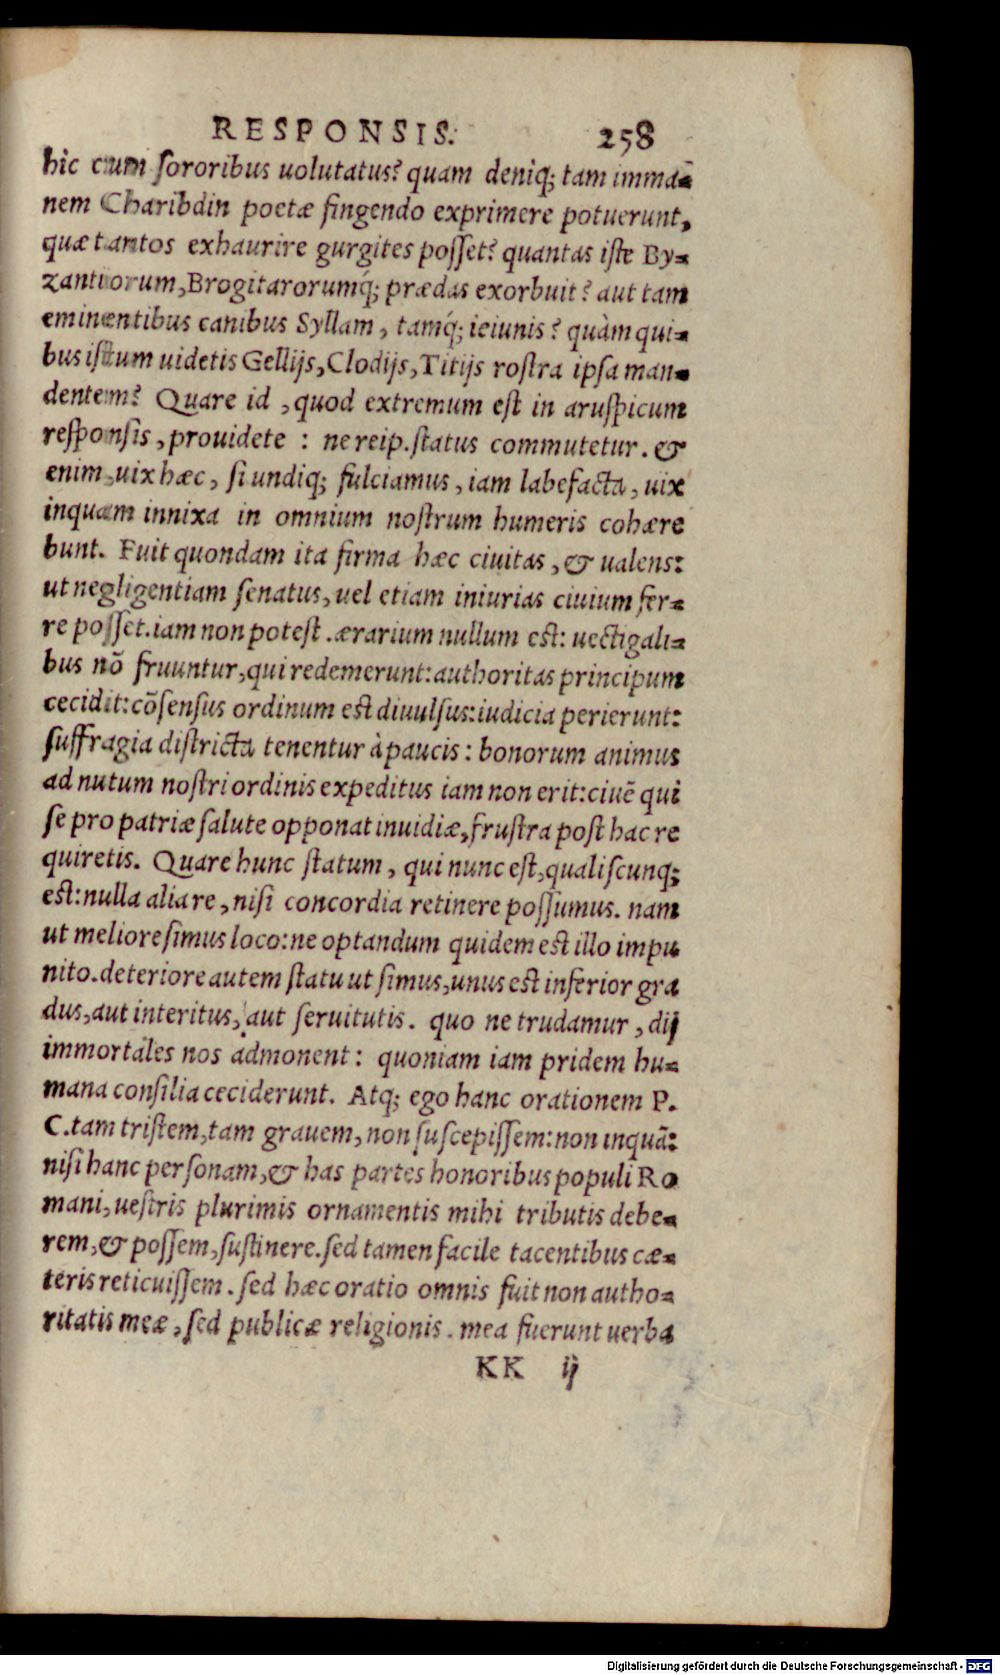 RESPONSIS. 258
hic cum sororibus uolutatus? quam deniq; tam imma-
nem Charibdin poetæ fingendo exprimere potuerunt,
quæ tantos exhaurire gurgites posset? quantas iste By-
zantiorum, Brogitarorumq́; prædas exorbuit? aut tam
eminentibus canibus Syllam, tamq́; ieiunis? quàm qui-
bus istum uidetis Gellijs, Clodijs, Titijs rostra ipsa man-
dentem? Quare id, quod extremum est in aruspicum
responsis, prouidete: ne reip. status commutetur. &
enim, uix hæc, si undiq; fulciamus, iam labefacta, uix
inquam innixa in omnium nostrum humeris cohære
bunt. Fuit quondam ita firma hæc ciuitas, & ualens:
ut negligentiam senatus, uel etiam iniurias ciuium fer-
re posset. iam non potest. ærarium nullum est: uectigali-
bus nō fruuntur, qui redemerunt: authoritas principum
cecidit: cōsensus ordinum est diuulsus: iudicia perierunt:
suffragia districta tenentur à paucis: bonorum animus
ad nutum nostri ordinis expeditus iam non erit: ciuē qui
se pro patriæ salute opponat inuidiæ, frustra post hac re
quiretis. Quare hunc statum, qui nunc est, qualiscunq;
est: nulla alia re, nisi concordia retinere possumus. nam
ut meliore simus loco: ne optandum quidem est illo impu
nito. deteriore autem statu ut simus, unus est inferior gra
dus, aut interitus, aut seruitutis. quo ne trudamur, dij
immortales nos admonent: quoniam iam pridem hu-
mana consilia ceciderunt. Atq; ego hanc orationem P.
C. tam tristem, tam grauem, non suscepissem: non inquā:
nisi hanc personam, & has partes honoribus populi Ro
mani, uestris plurimis ornamentis mihi tributis debe-
rem, & possem, sustinere. sed tamen facile tacentibus cæ-
teris reticuissem. sed hæc oratio omnis fuit non autho-
ritatis meæ, sed publicæ religionis. mea fuerunt uerba
KK ij
Digitalisierung gefördert durch die Deutsche Forschungsgemeinschaft - DFG